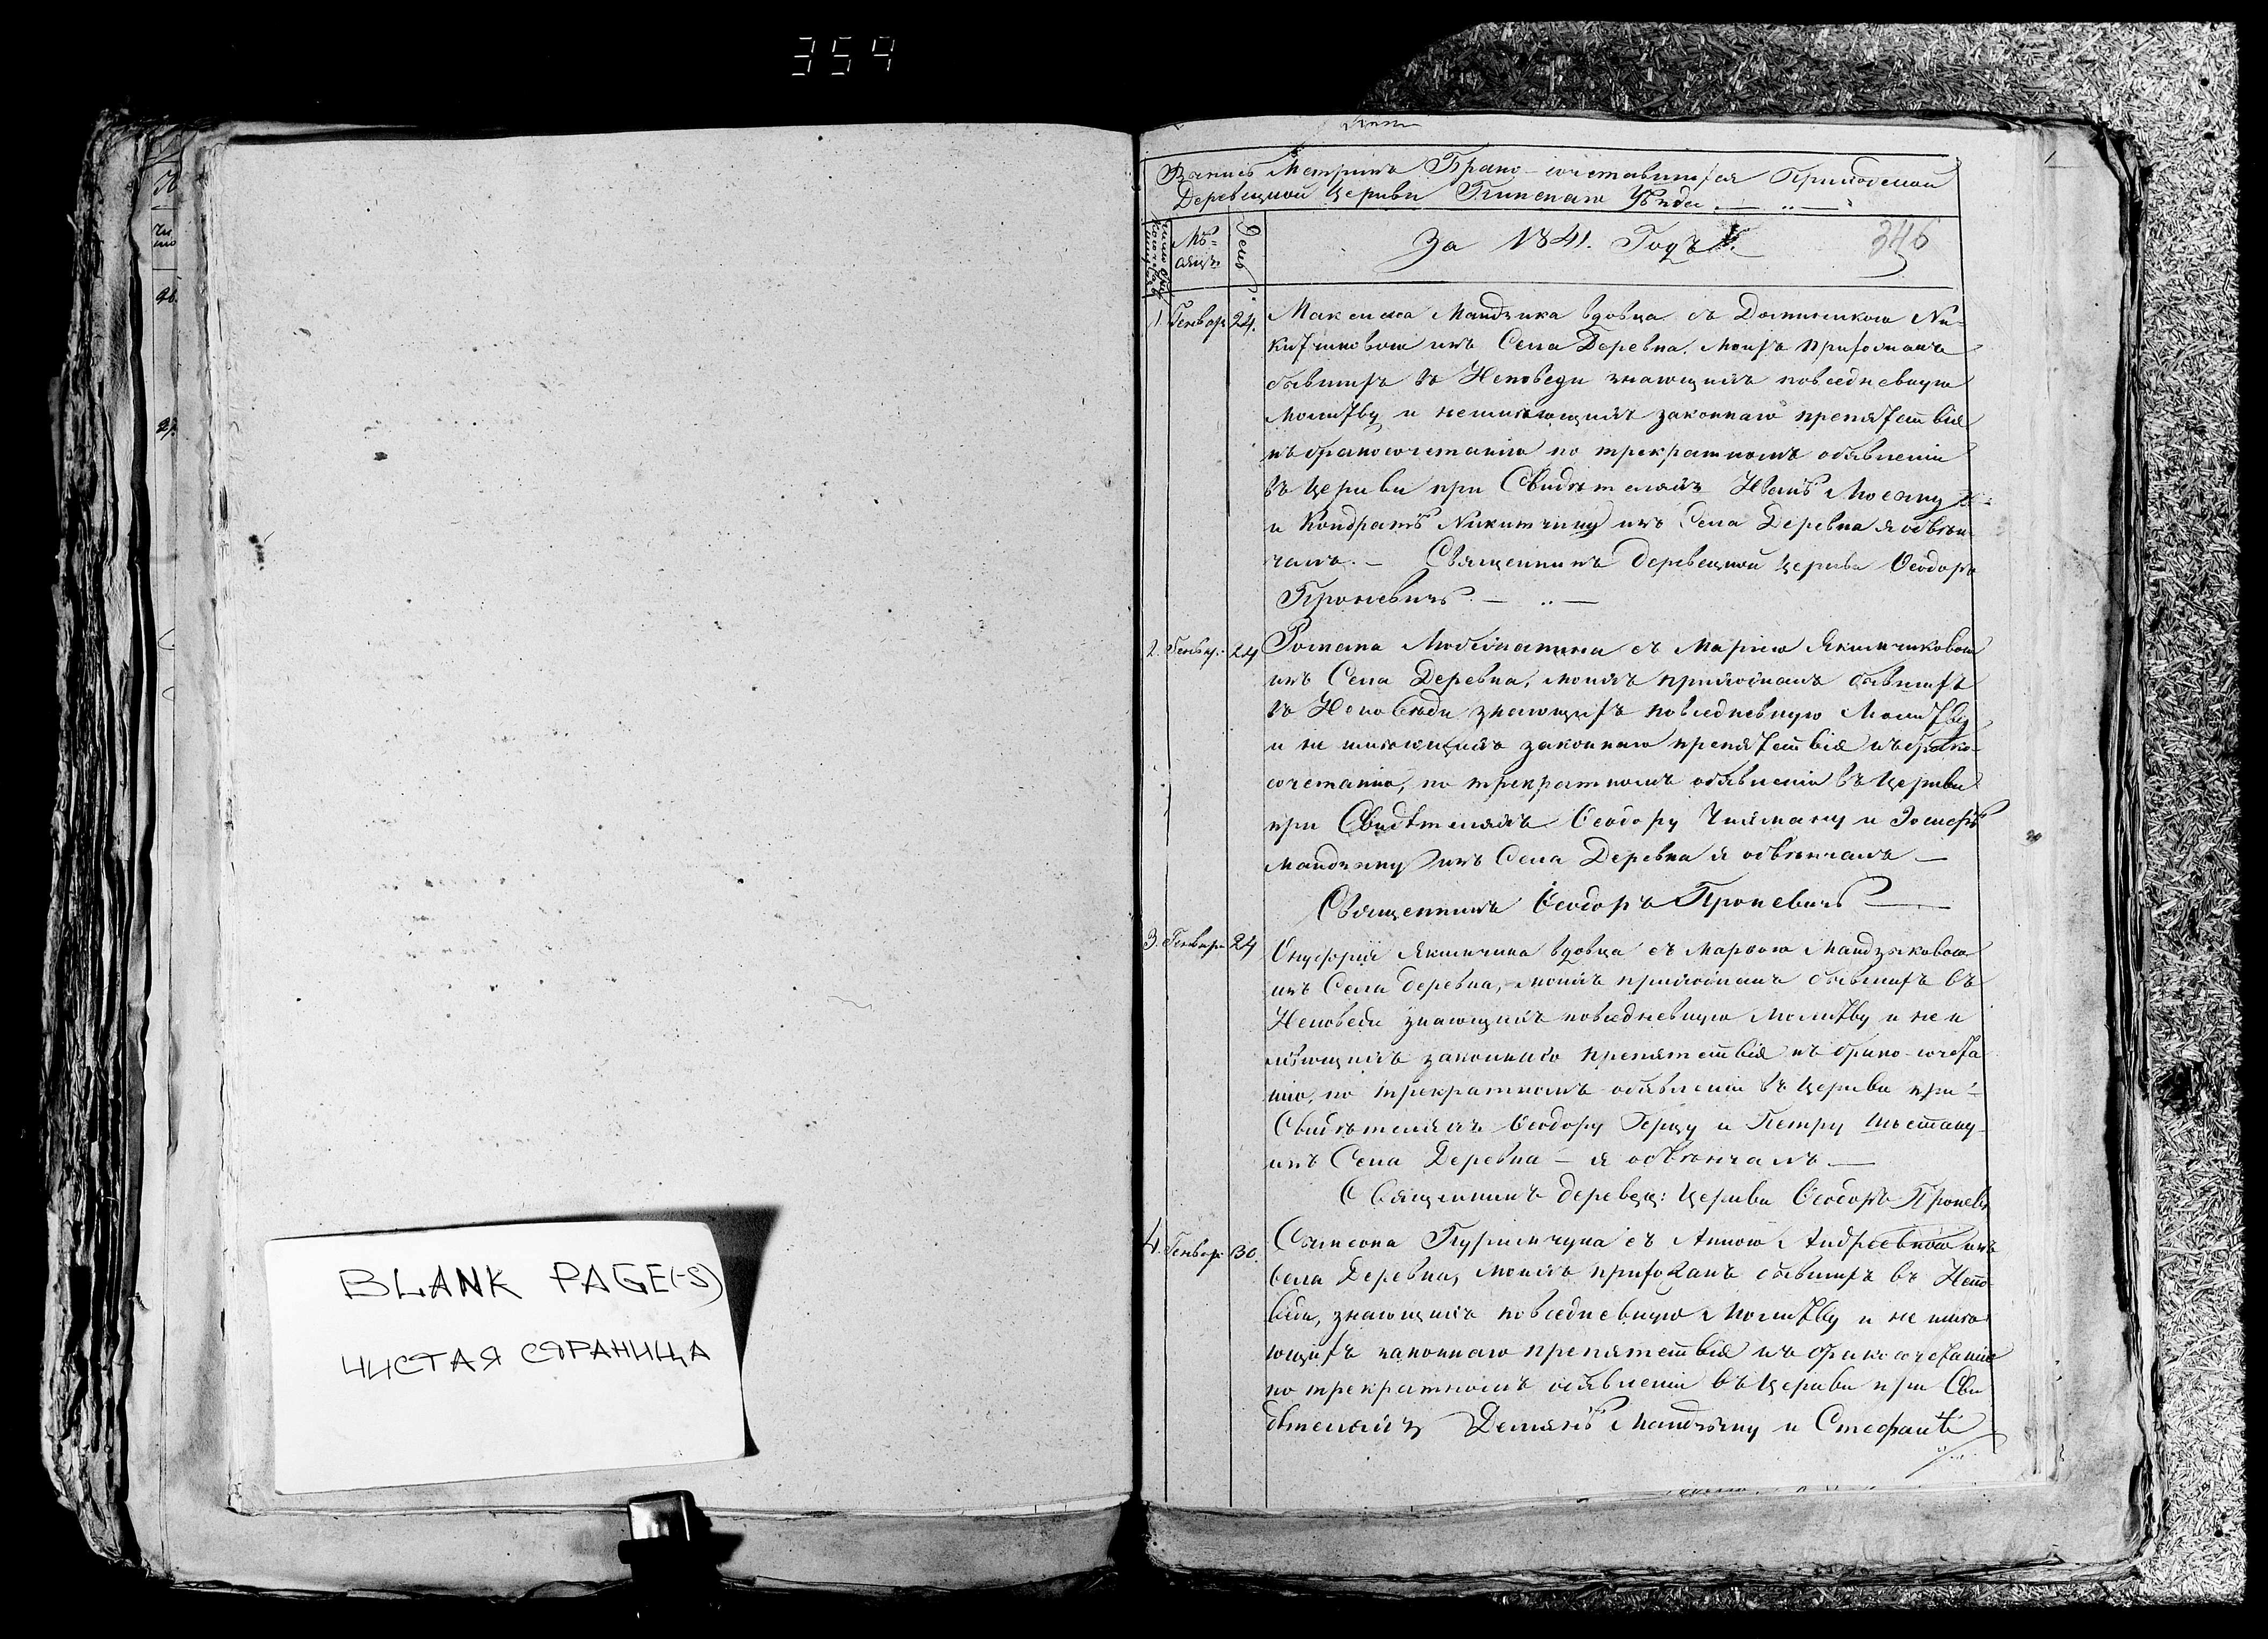 359
BLANK PAGE(-S)
ЧИСТАЯ СТРАНИЦА
Запись Метрикъ Брако-сочетавшихся Приходской
Деревецкой Церкви Пинскаго Уѣзда.
Мѣ=
сяцъ
День
За 1841. Годъ
346
1. Генвар 24. Максима Мандзика вдовца съ Доминикою Ни-
китчиковою изъ Села Деревна. Моихъ прихожанъ
бывшихъ въ Исповеди знающихъ повседневную
Молитву и неимѣющихъ законнаго препятствія
къ бракосочетанію по трекратномъ объявленіи
въ Церкви при Свидѣтеляхъ Иванѣ
и Кондратѣ Никитчику изъ Села Деревна я обвѣн-
чалъ. — Священникъ Деревецкой Церкви Ѳеодоръ
Проневичъ. —
2. Генвар. 24 Романа съ Маріею Якимчиковою
изъ Села Деревна, моихъ прихожанъ бывшихъ
въ Исповѣди знающихъ повседневную Молитву
и не имѣющихъ законнаго препятствія къ брако-
сочетанію, по трекратномъ объявленіи въ Церкви
при Свидѣтеляхъ Ѳеодору и Іосифѣ
Мандзику изъ Села Деревна я обвѣнчалъ —
Священникъ Ѳеодоръ Проневичъ
3. Генвар 24 Онуфрія Якимчика вдовца съ Марѳою Мандзиковою
изъ Села Деревна, моихъ прихожанъ бывшихъ въ
Исповеди знающихъ повседневную Молитву и не и
мѣющихъ законнаго препятствія къ брако-сочета
нію, по трекратномъ объявленіи въ Церкви при
Свидѣтеляхъ Ѳеодору и Петру Шостаку
изъ Села Деревна — я обвѣнчалъ —
Священникъ Деревец: Церкви Ѳеодоръ Проневи
4. Генвар 30. Самсона съ Анною Андреевною изъ
Села Деревна, моихъ прихожанъ бывшихъ въ Испо
веди, знающихъ повседневную Молитву и не имѣ
ющихъ законнаго препятствія къ бракосочетанію
по трекратномъ объявленіи въ Церкви при Сви
дѣтеляхъ Демянѣ Мандзику и Стефанѣ